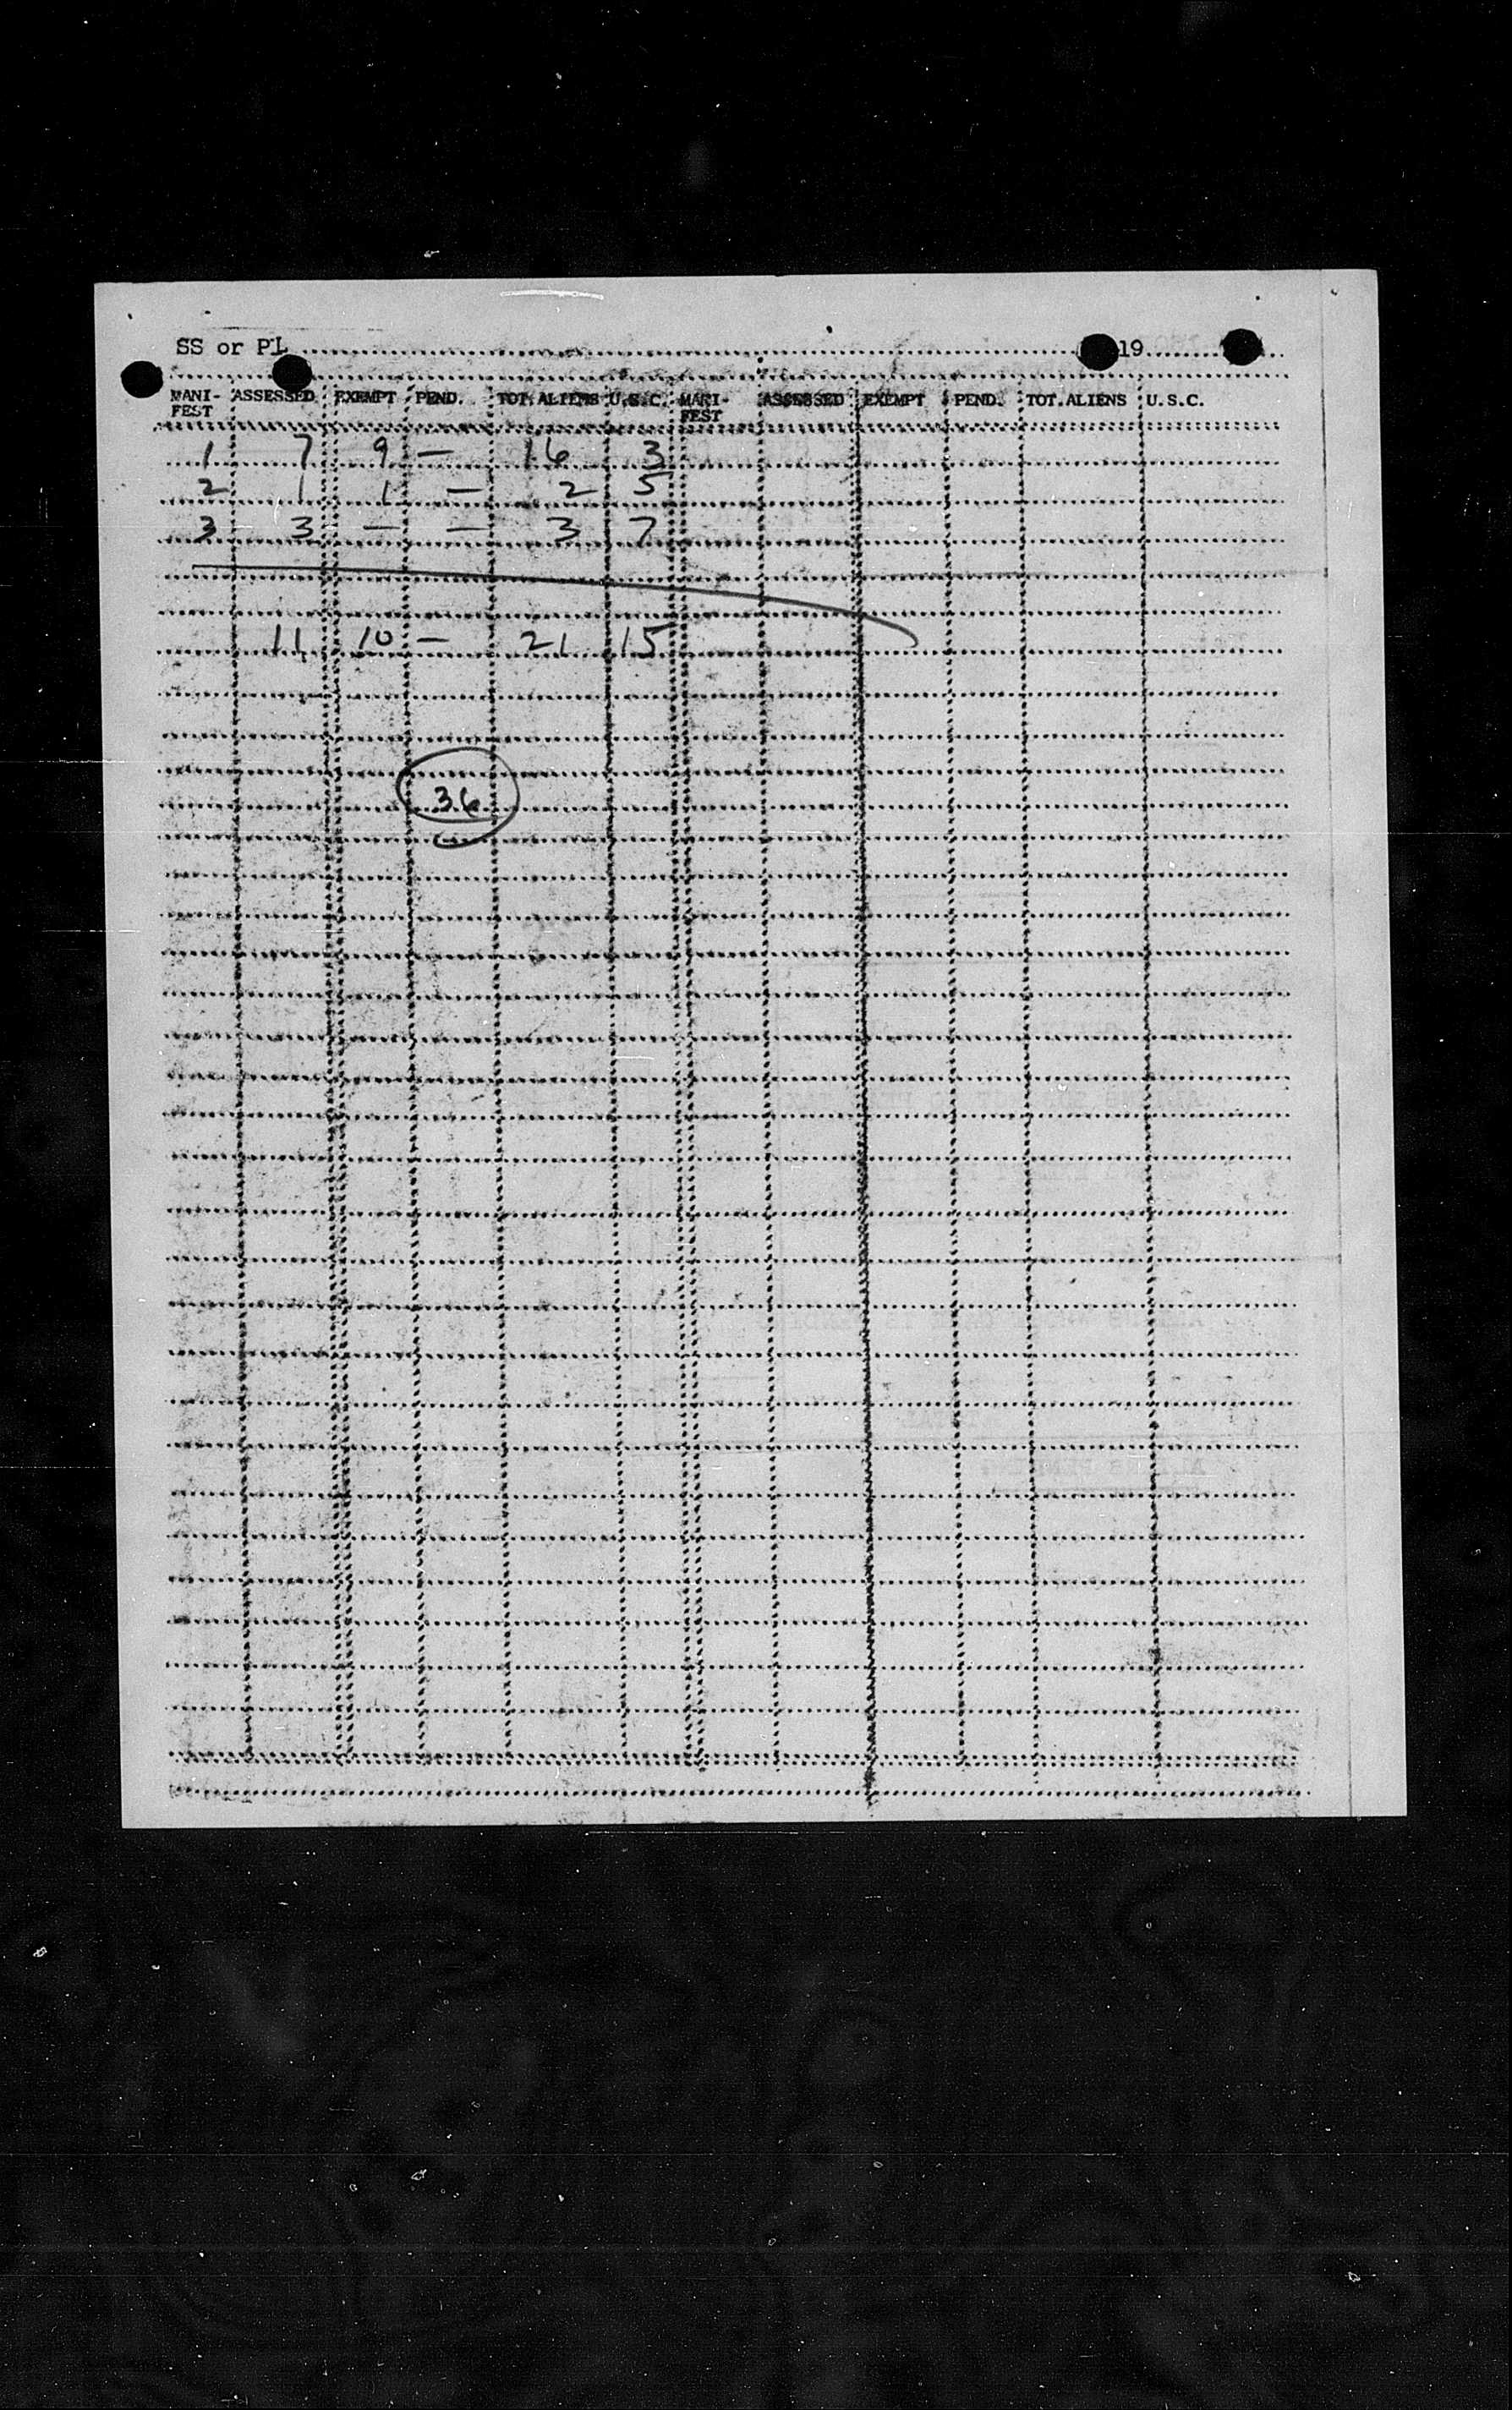 SS or PL 19
MANI- ASSESSED EXEMPT PEND. TOT. ALIENS U.S.C. MANI- ASSESSED EXEMPT PEND. TOT. ALIENS U.S.C.
FEST FEST
1 7 9 — 16 3
2 1 1 — 2 5
3 3 — — 3 7
11 10 — 21 15
36